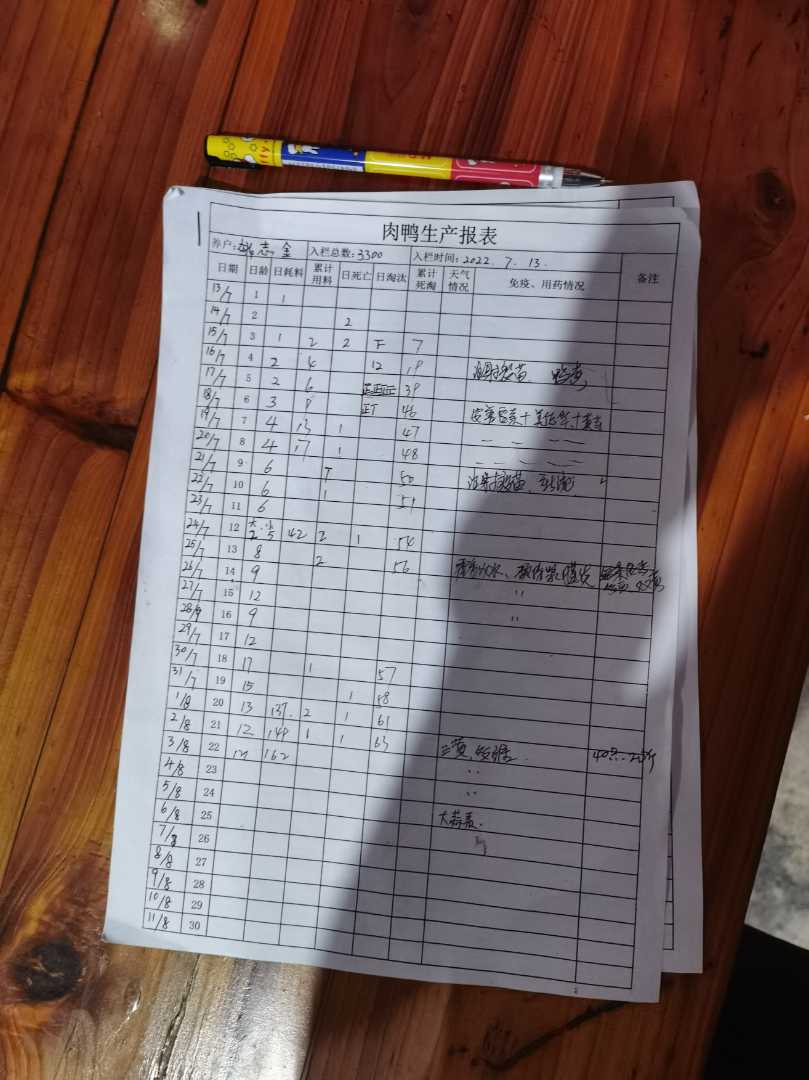 肉鸭生产报表
养户: 志金 入栏总数:3300 入栏时间:2022.7.13.
日期 日龄 日耗料 累计用料 日死亡 日淘汰 累计死淘 天气情况 免疫、用药情况 备注
13/7 1 1
14/7 2 2
15/7 3 1 2 2 F 7
16/7 4 2 4 12 19
17/7 5 2 6 正正正 39
18/7 6 3 8 正丁 46
19/7 7 4 13 1 47
20/7 8 4 17 1 48
21/7 9 6 50
22/7 10 6 1 51
23/7 11 6
24/7 12 大 小 2 5 42 2 1 54
25/7 13 8 2 56
26/7 14 9
27/7 15 12 〃
28/7 16 9 〃
29/7 17 12
30/7 18 17 1 57
31/7 19 15 1 58
1/8 20 13 137. 2 1 61
2/8 21 12 149 1 1 63
3/8 22 162
4/8 23 〃
5/8 24 〃
6/8 25 大蒜素.
7/8 26
8/8 27
9/8 28
10/8 29
11/8 30